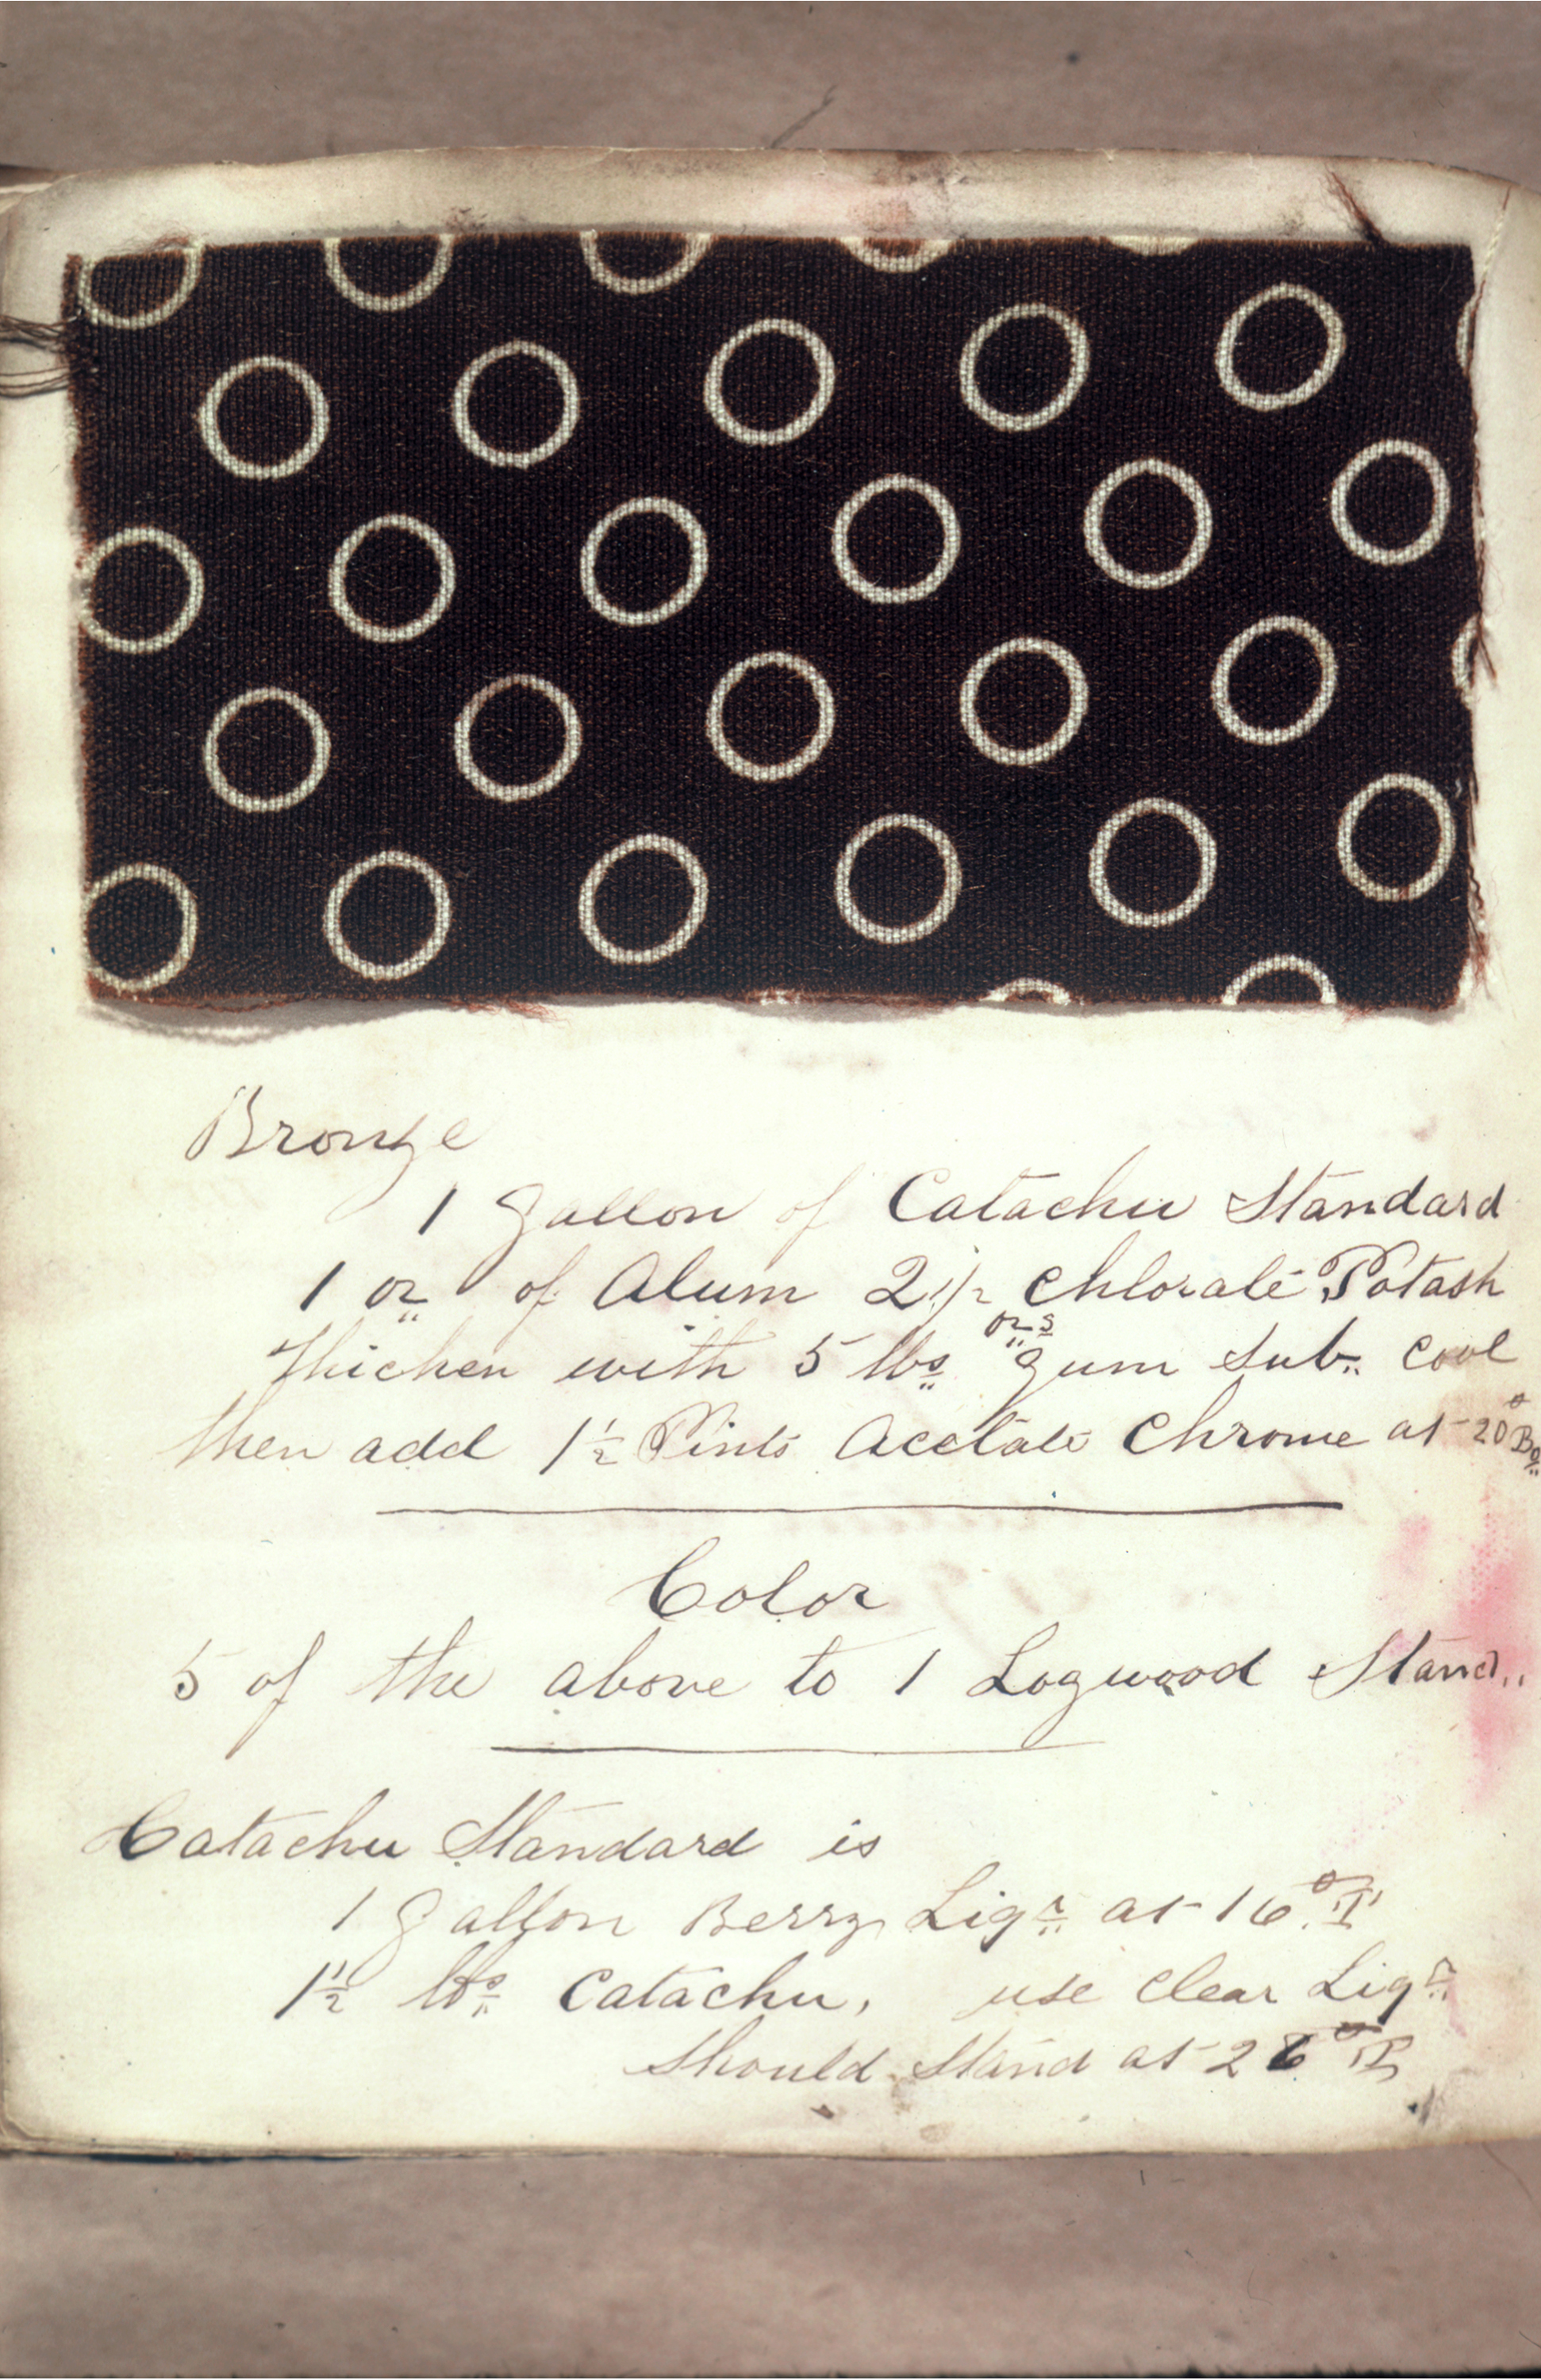 Bronze
1 Gallon of Catachu Standard
1 oz of Alum 2 1/2 ozs Chlorate Potash
Thicken with 5 lbs Gum Sub. Cool
then add 1 1/2 Pints Acetate Chrome at 20° Be
Color
5 of the above to 1 Logwood Stand..
Catachu Standard is
1 Gallon Berry Liqr at 16° T
1 1/2 lbs Catachu, use Clear Liqr
Should Stand at 26° T